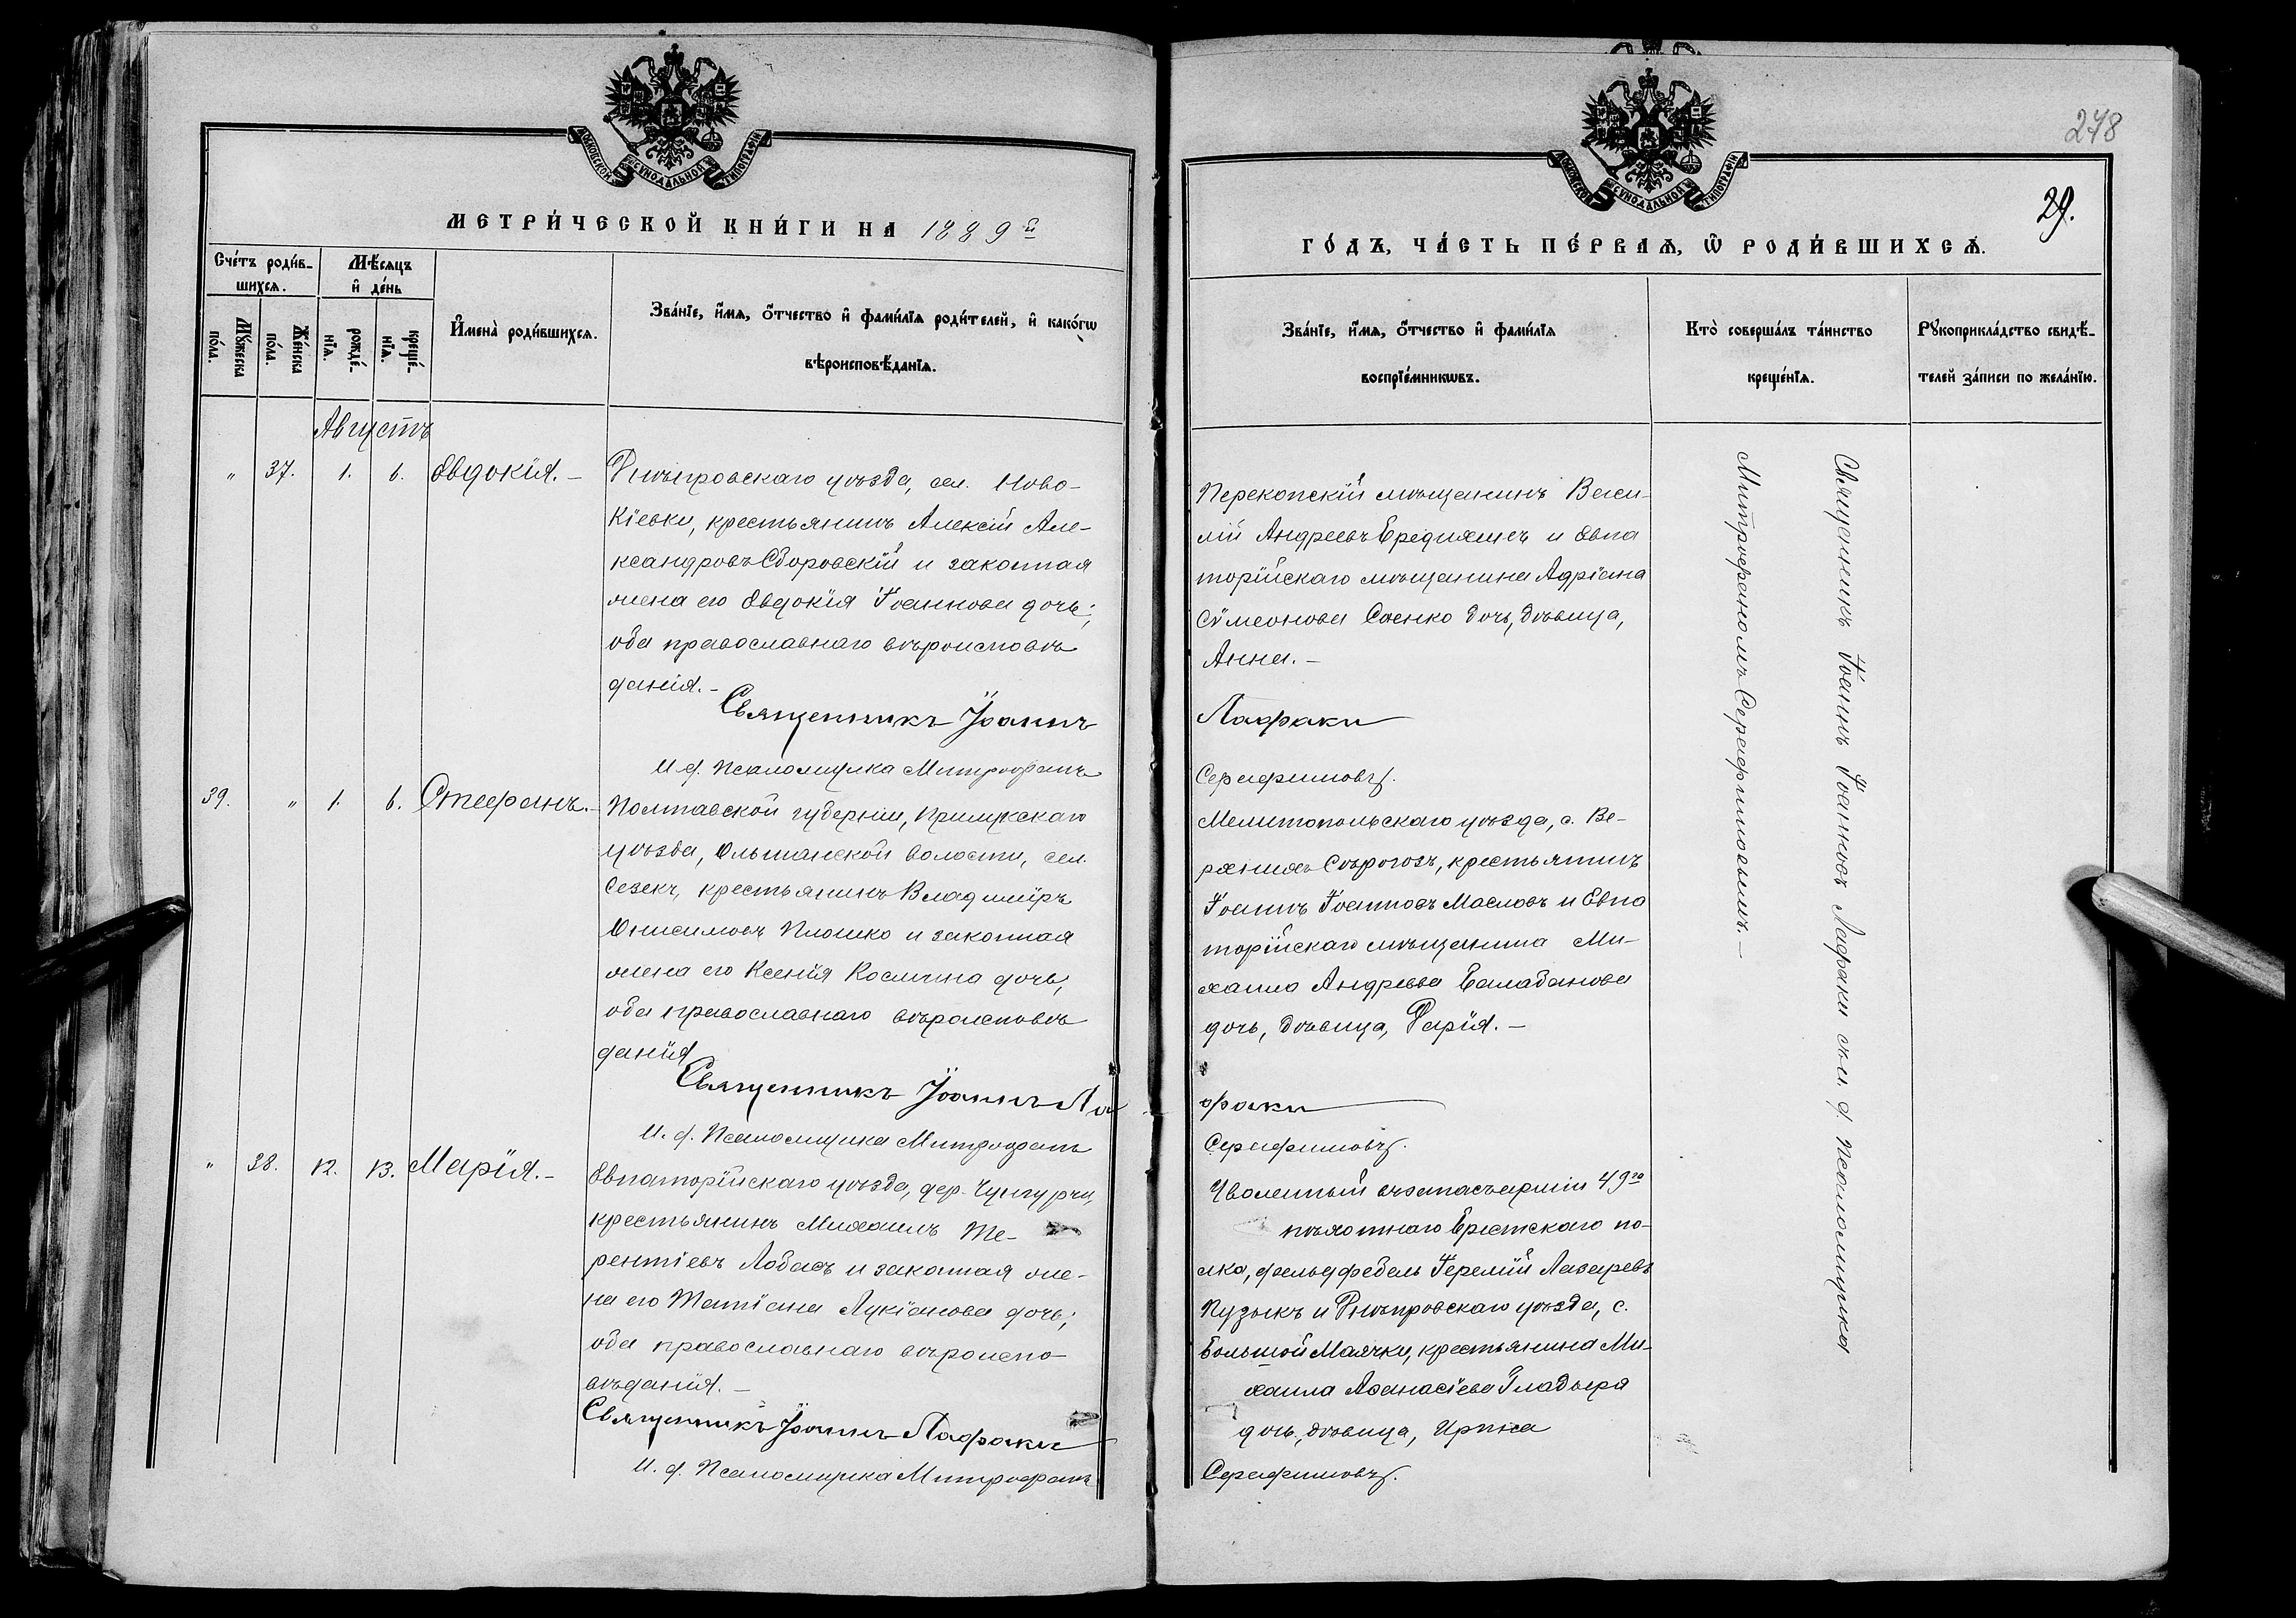 МОСКОВСКОЙ СѴНОДАЛЬНОЙ ТИПОГРАФІИ
МЕТРИ́ЧЕСКОЙ КНИ́ГИ НА 1889й
Сче́тъ роди́в-
шихсѧ.
Мѣ́сѧцъ
и҆ де́нь
И҆мена̀ роди́вшихсѧ.
Зва́нїе, и҆́мѧ, ѻ҆́тчество и҆ фами́лїѧ роди́телей, и҆ како́гѡ
вѣроисповѣ́данїѧ.
Мꙋ́жеска
по́ла.
Же́нска
по́ла.
рожде́-
нїѧ.
креще́-
нїѧ.
Августъ
" 37. 1. 6. Евдокія. –
Днѣпровскаго уѣзда, сел. Ново-
Кіевки, крестьянинъ Алексій Але-
ксандровъ Сборовскій и законная
жена его Евдокія Іоаннова дочь;
оба православнаго вѣроисповѣ
данія. –
Священникъ Іоаннъ
И. д. Псаломщика Митрофанъ
39. " 1. 6. Стефанъ. –
Полтавской губерніи, Прилукскаго
уѣзда, Ольшанской волости, сел.
крестьянинъ Владиміръ
Онисимовъ Плошко и законная
жена его Ксенія Космина дочь,
оба православнаго вѣроисповѣ
данія
Священникъ Іоаннъ Ла
И. д. Псаломщика Митрофанъ
" 38. 12. 13. Марія. –
Евпаторійскаго уѣзда, дер.
крестьянинъ Михаилъ Те-
рентіевъ Лобасъ и законная же-
на его Татіана Лукіанова дочь;
оба православнаго вѣроиспо-
вѣданія. –
Священникъ Іоаннъ Лафаки
И. д. Псаломщика Митрофанъ
278
29.
МОСКОВСКОЙ СѴНОДАЛЬНОЙ ТИПОГРАФІИ
ГО́ДЪ, ЧА́СТЬ ПЕ́РВАѦ, Ѽ РОДИ́ВШИХСѦ.
Зва́нїе, и҆́мѧ, ѻ҆́тчество и҆ фами́лїѧ
воспрїе́мникѡвъ.
Кто̀ соверша́лъ та́инство
креще́нїѧ.
Рꙋкоприкла́дство свидѣ́-
телей за́писи по жела́нїю.
Перекопскій мѣщанинъ Васи-
лій Андреевъ и Евпа
торійскаго мѣщанина Адріана
Сѵмеонова Саенко дочь, дѣвица,
Анна. –
Лафаки
Серафимовъ.
Мелитопольскаго уѣзда, с. Ве-
рхнихъ Сѣрогозъ, крестьянинъ
Іоаннъ Іоанновъ Масловъ и Евпа
торійскаго мѣщанина Ми-
хаила Андреева Балабанова
дочь, дѣвица, Дарія. –
факи
Серафимовъ.
Уволенный въ запасъ арміи 49го
пѣхотнаго Брестскаго по-
лка, фельдфебель Іеремій Лазаревъ
Пузыкъ и Днѣпровскаго уѣзда, с.
Большой Маячки, крестьянина Ми-
хаила Аѳанасіева Гладыря
дочь, дѣвица, Ирина
Серафимовъ.
Священникъ Іоаннъ Іоанновъ Лафаки съ и. д. Псаломщика
Митрофаномъ Серафимовымъ. –